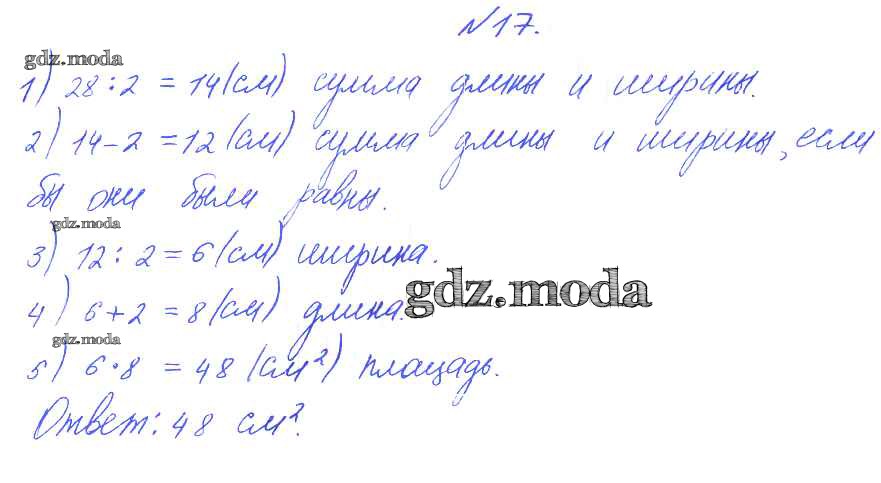 №17.
gdz.moda
1) 28 : 2 = 14 (см) сумма длины и ширины.
2) 14 - 2 = 12 (см) сумма длины и ширины, если
бы они были равны.
gdz.moda
3) 12 : 2 = 6 (см) ширина.
gdz.moda
4) 6 + 2 = 8 (см) длина.
gdz.moda
5) 6 · 8 = 48 (см²) площадь.
Ответ: 48 см².